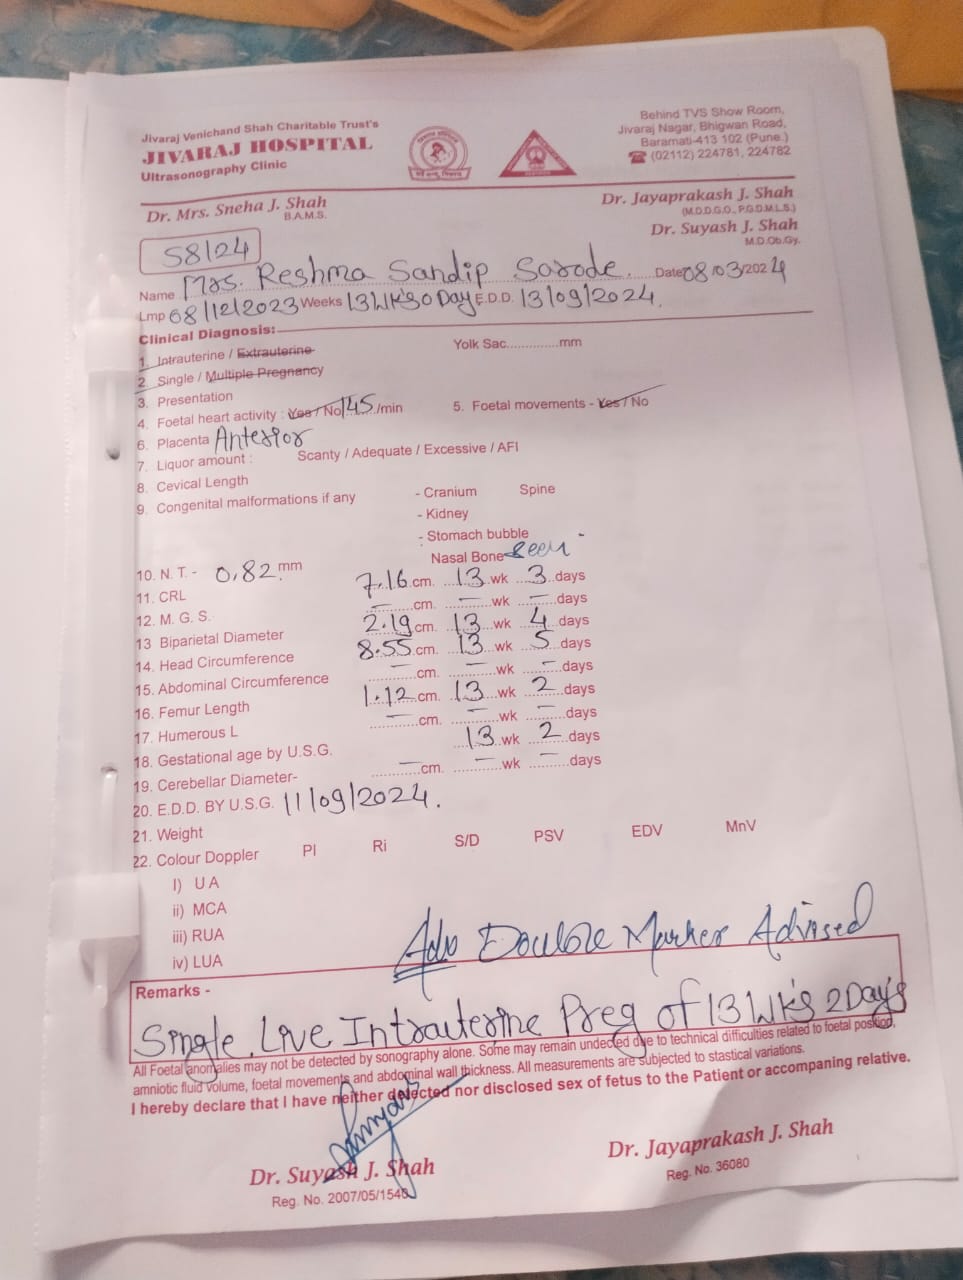 Jivaraj Venichand Shah Charitable Trust's
JIVARAJ HOSPITAL
Ultrasonography Clinic
Behind TVS Show Room,
Jivaraj Nagar, Bhigwan Road,
Baramati-413 102 (Pune.)
☎ (02112) 224781, 224782
Dr. Mrs. Sneha J. Shah
B.A.M.S.
Dr. Jayaprakash J. Shah
(M.D.D.G.O., P.G.D.M.L.S.)
Dr. Suyash J. Shah
M.D.Ob.Gy.
58/24
Name Mrs. Reshma Sandip Sarode. Date 08/03/2024
Lmp 08/12/2023 Weeks 13WKS 0 Day E.D.D. 13/09/2024.
Clinical Diagnosis:-
1. Intrauterine / Extrauterine Yolk Sac.............mm
2. Single / Multiple Pregnancy
3. Presentation
4. Foetal heart activity : Yes / No 145 /min 5. Foetal movements - Yes / No
6. Placenta Anterior
7. Liquor amount : Scanty / Adequate / Excessive / AFI
8. Cevical Length
9. Congenital malformations if any - Cranium Spine
- Kidney
- Stomach bubble
Nasal Bone seen
10. N. T. - 0.82 mm
11. CRL 7.16 cm. 13 wk 3 days
12. M. G. S. - cm. - wk - days
13 Biparietal Diameter 2.19 cm. 13 wk 4 days
14. Head Circumference 8.55 cm. 13 wk 5 days
15. Abdominal Circumference - cm. - wk - days
16. Femur Length 1.12 cm. 13 wk 2 days
17. Humerous L - cm. - wk - days
18. Gestational age by U.S.G. 13 wk 2 days
19. Cerebellar Diameter- - cm. - wk - days
20. E.D.D. BY U.S.G. 11/09/2024.
21. Weight
22. Colour Doppler PI Ri S/D PSV EDV MnV
I) U A
ii) MCA
iii) RUA
iv) LUA
Adv Double Marker Advised
Remarks -
Single Live Intrauterine Preg of 13 WK's 2 Day's
All Foetal anomalies may not be detected by sonography alone. Some may remain undected due to technical difficulties related to foetal position,
amniotic fluid volume, foetal movements and abdominal wall thickness. All measurements are subjected to stastical variations.
I hereby declare that I have neither detected nor disclosed sex of fetus to the Patient or accompaning relative.
Dr. Suyash J. Shah
Reg. No. 2007/05/1540
Dr. Jayaprakash J. Shah
Reg. No. 36080